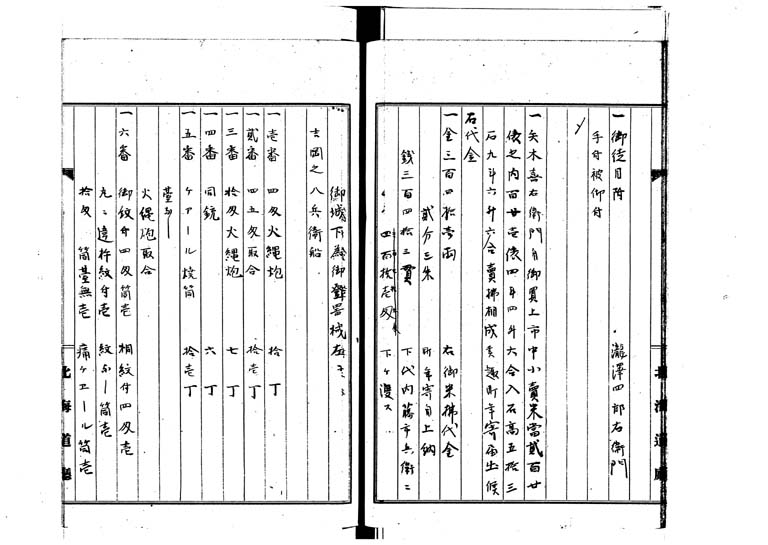 一御徒目附
瀧澤四郎右衛門
手付被仰付
一矢木喜右衛門御買上市中小賣米當貳百廿
俵之内百廿壱俵四斗四升六合入石高五拾三
石九斗六升六合賣拂相成候趣町年寄届出候
右代金
一金三百四拾壱両 右御米拂代金
貳分三朱 町年寄上納
銭三百四拾三貫 下代内藤市兵衛ニ
四百枚壱匁 下ケ渡ス
御城下御武器械
吉岡之八兵衛船
一壱番 四匁火縄炮 拾丁
一貳番 四五匁取合 拾壱丁
一三番 拾匁火縄炮 七丁
一四番 同銃 六丁
一五番 ケヘール筒 拾壱丁
臺
火縄炮取合
一六番 御紋付四匁筒壱 桐紋付四匁壱
丸ニ違柏紋付壱 紋筒壱
拾匁 筒臺無壱 痛ケヘール筒壱
北海道廳
北海道廳